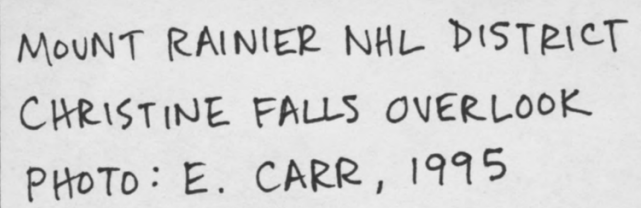 MOUNT RAINIER NHL DISTRICT
CHRISTINE FALLS OVERLOOK
PHOTO: E. CARR, 1995